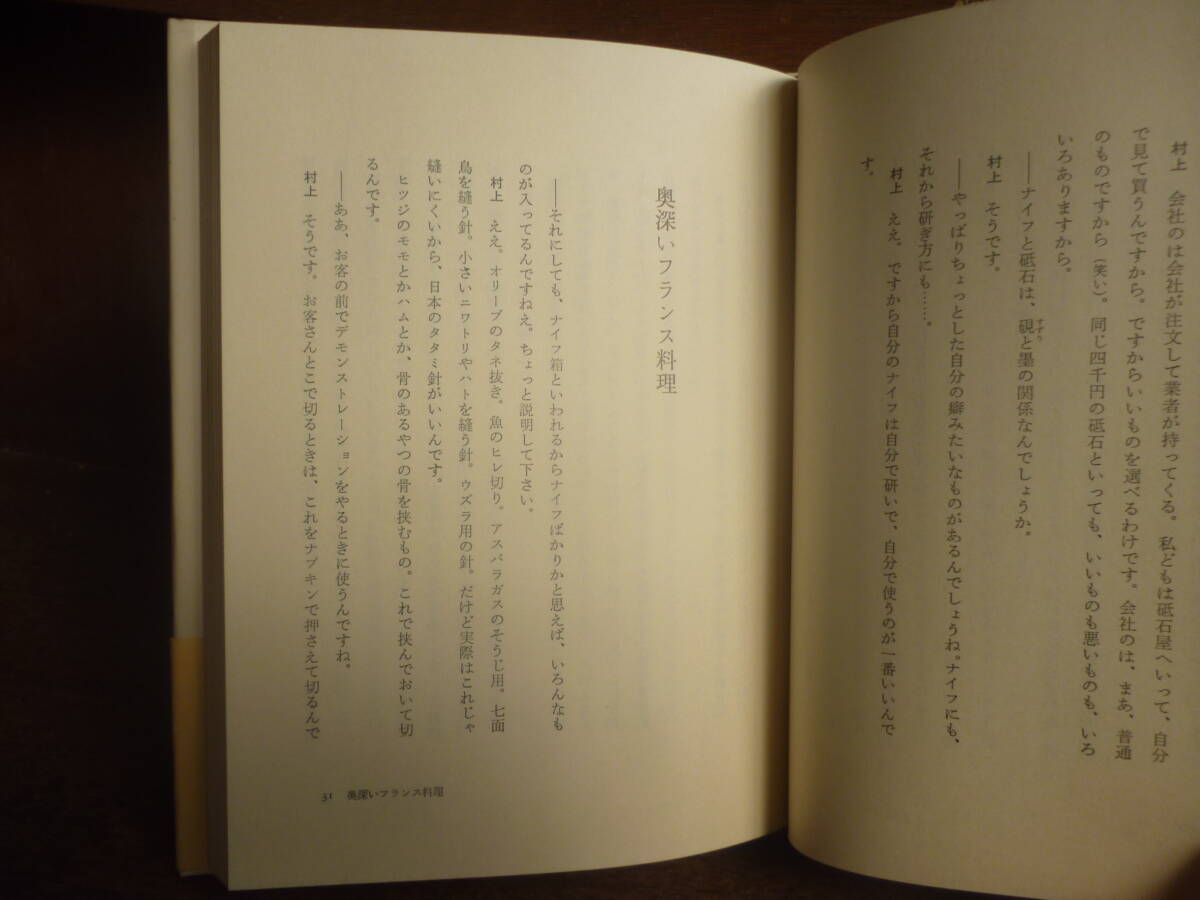 村上　会社のは会社が注文して業者が持ってくる。私どもは砥石屋へいって、自分
で見て買うんですから。ですからいいものを選べるわけです。会社のは、まあ、普通
のものですから（笑い）。同じ四千円の砥石といっても、いいものも悪いものも、いろ
いろありますから。
――ナイフと砥石は、硯と墨の関係なんでしょうか。
すずり
村上　そうです。
――やっぱりちょっとした自分の癖みたいなものがあるんでしょうね。ナイフにも、
それから研ぎ方にも……。
村上　ええ。ですから自分のナイフは自分で研いで、自分で使うのが一番いいんで
す。
奥深いフランス料理
――それにしても、ナイフ箱といわれるからナイフばかりかと思えば、いろんなも
のが入ってるんですねえ。ちょっと説明して下さい。
村上　ええ。オリーブのタネ抜き。魚のヒレ切り。アスパラガスのそうじ用。七面
鳥を縫う針。小さいニワトリやハトを縫う針。ウズラ用の針。だけど実際はこれじゃ
縫いにくいから、日本のタタミ針がいいんです。
ヒツジのモモとかハムとか、骨のあるやつの骨を挟むもの。これで挟んでおいて切
るんです。
――ああ、お客の前でデモンストレーションをやるときに使うんですね。
村上　そうです。お客さんとこで切るときは、これをナプキンで押さえて切るんで
31　奥深いフランス料理